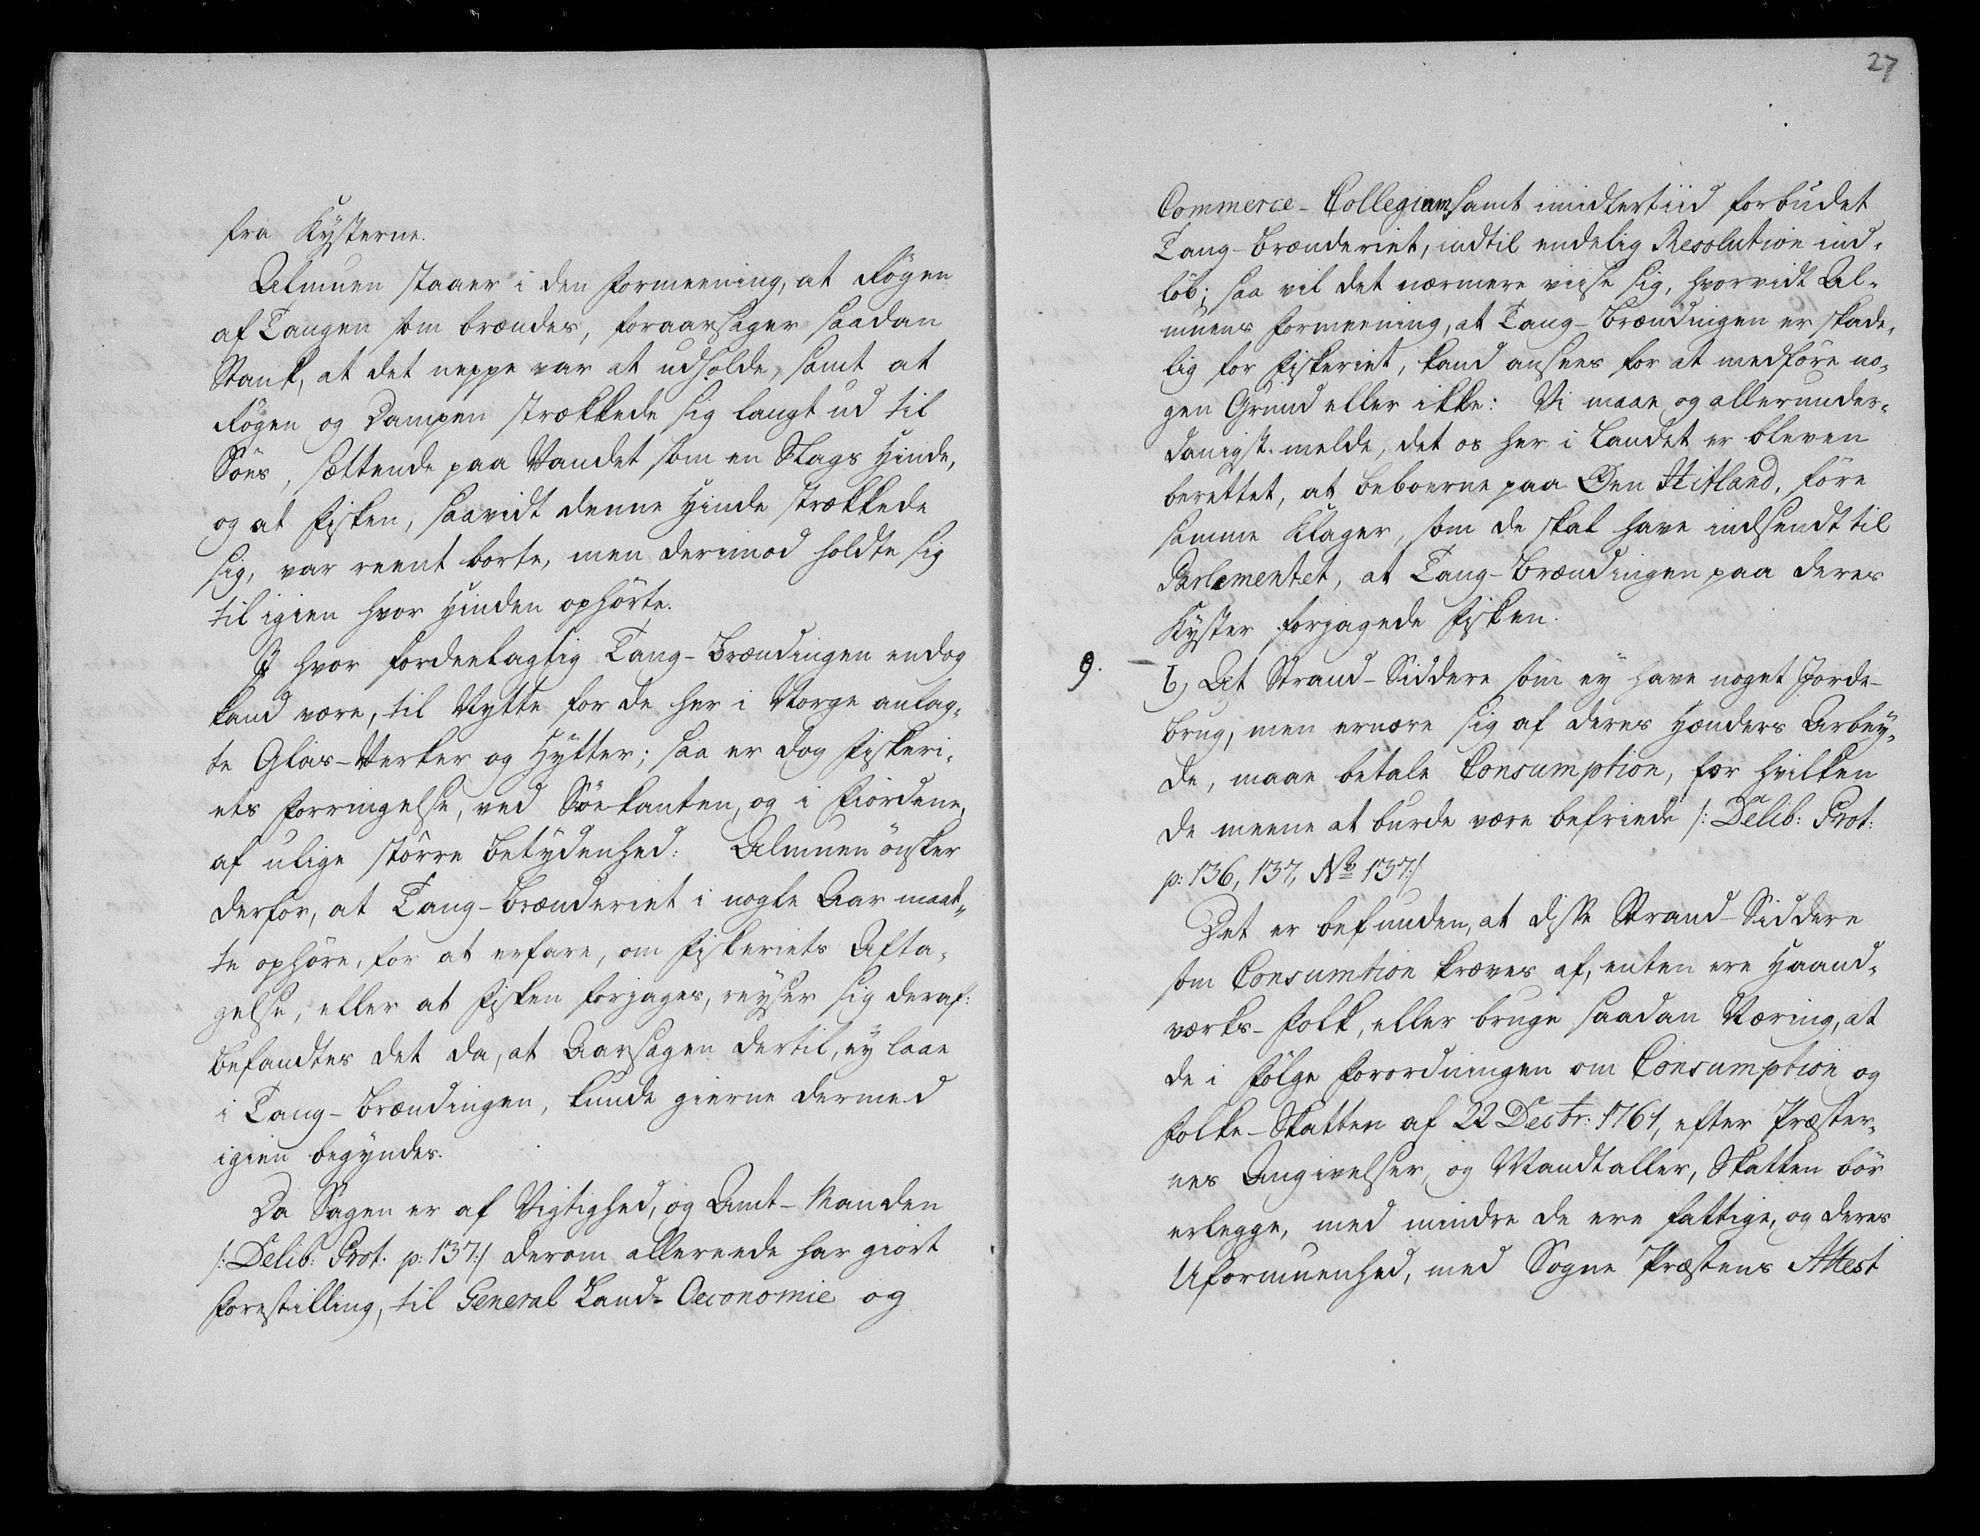 fra Kysterne.
Almuen staaer i den Formeening, at Røgen
af Tangen som brændes, foraarsager saadan
Stank, at det neppe var at udholde, samt at
Røgen og Dampen strækkede sig langt ud til
Söes, settende paa Vandet som en Slags Hinde,
og at Fisken, saavidt denne Hinde strækkede
sig, var reent borte, men derimod holdte sig
til igien hvor Hinden ophörte.
I hvor fordeelagtig Tang-Brændingen endog
kand være, til Nytte for de her i Norge anlag-
te Glas-Verker og Hytter; saa er dog Fiskeri-
ets Forringelse, ved Söekanten, og i Fiordene,
af ulige större Betydenhed: Almuen önsker
derfor, at Tang-Brænderiet i nogle Aar maat-
te ophöre, for at erfare, om Fiskeriets Afta-
gelse, eller at Fisken forjages, reyser sig deraf:
befandtes det da, at Aarsagen dertil, ey laae
i Tang-Brændingen, kunde gierne dermed
igien begyndes.
Da Sagen er af Vigtighed, og Amt-Manden
/: Delib: Prot. p: 137:/ derom allereede har giort
Forestilling, til General Land-Oeconomie og
27
Commerce-Collegium, samt imidlertiid forbudet
Tang-Brænderiet, indtil endelig Resolution ind-
löb; saa vil det nærmere viise sig, hvorvidt Al-
muens Formeening, at Tang-Brændingen er skade-
lig for Fiskeriet, kand ansees for at medföre no-
gen Grund eller ikke: Vi maae og allerunder-
danigst. melde, det os her i Landet er bleven
berettet, at Beboerne paa Öen Hitland, före
samme Klager, som de skal have indsendt til
Parlementet, at Tang-Brændingen paa deres
Kyster forjagede Fisken.
9. b, At Strand-Siddere som ey have noget Jorde-
brug, men ernære sig af deres Hænders Arbey-
de, maae betale Consumption, for hvilken
de meene at burde være befriede /: Delib: Prot:
p: 136, 137, No 137:/
Det er befunden, at disse Strand-Siddere
som Consumtion kræves af, enten ere Haand-
værks-Folk, eller bruge saadan Næring, at
de i Fölge Forordningen om Consumption og
Folke-Skatten af 22 Decbr: 1761, efter Præster-
nes Angivelser, og Mandtaller, Skatten bör
erlegge, med mindre de ere fattige, og deres
Uformuenhed, med Sogne Præstens Attest